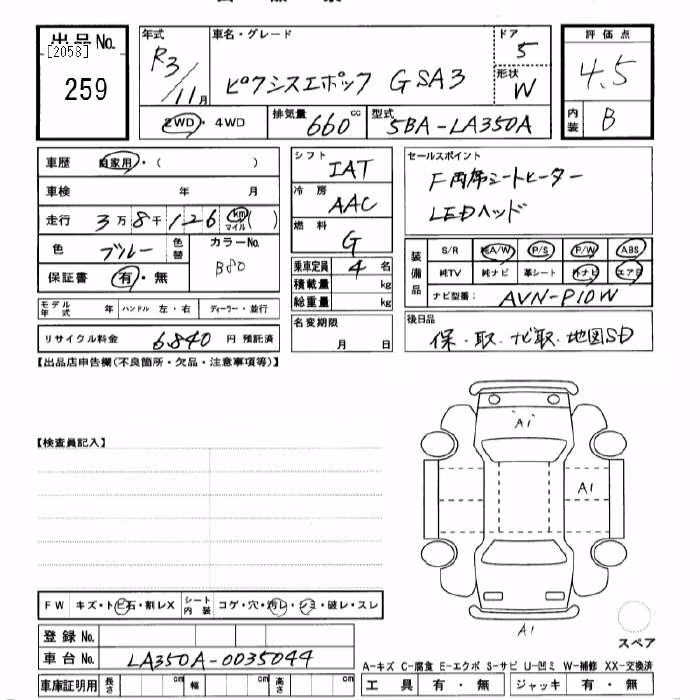 出品 No.
[2058]
259
年式 R3/11月
車名・グレード ピクシスエポック G SA3
ドア 5
形状 W
評価点 4.5
内装 B
2WD・4WD
排気量 660cc
型式 5BA-LA350A
車歴 自家用・( )
車検 年 月
走行 3万8千126 km マイル ( )
色 ブルー 色替 カラーNo. B80
保証書 有・無
モデル年式 年 ハンドル 左・右 ディーラー・並行
リサイクル料金 6,840 円 預託済
シフト IAT
冷房 AAC
燃料 G
乗車定員 4 名
積載量 kg
総重量 kg
名変期限 月 日
セールスポイント
F両席シートヒーター
LEDヘッド
装備品 S/R 純A/W P/S P/W ABS
純TV 純ナビ 革シート 外ナビ エアB
ナビ型番: AVN-P10W
後日品
保・取・ナビ取・地図SD
【出品店申告欄(不良箇所・欠品・注意事項等)】
【検査員記入】
A1
A1
A1
スペア
FW キズ・トビ石・割レX シート内装 コゲ・穴・汚レ・シミ・破レ・スレ
登録 No.
車台 No. LA350A-0035044
車庫証明用 長さ cm 幅 cm 高さ cm
A-キズ C-腐食 E-エクボ S-サビ U-凹ミ W-補修 XX-交換済
工具 有・無 ジャッキ 有・無